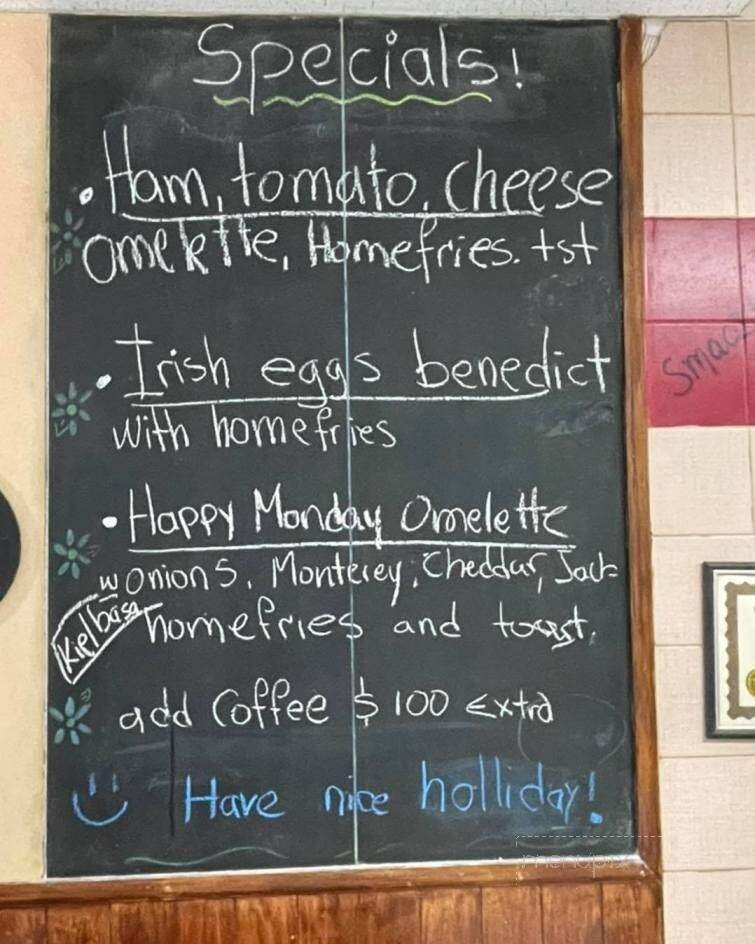 Specials!
• Ham, tomato, cheese
Omelette, Homefries. tst
• Irish eggs benedict
with homefries
• Happy Monday Omelette
w onions, Monterey, Cheddar, Jack
Kielbasa homefries and toast.
add Coffee $ 100 Extra
Have nice holliday!
Smac